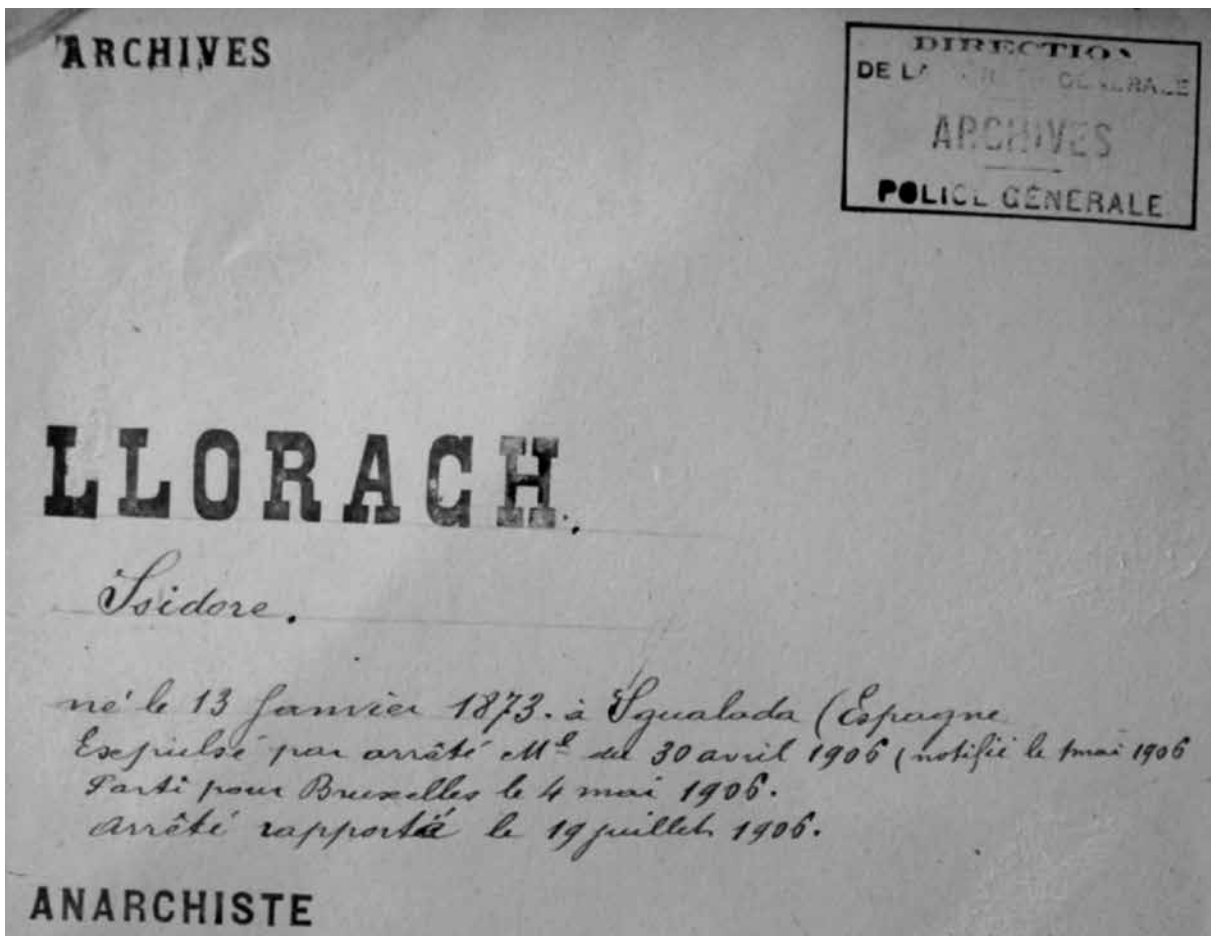 ARCHIVES
DIRECTION
DE LA GÉNÉRALE
ARCHIVES
POLICE GÉNÉRALE
LLORACH.
Isidore.
né le 13 Janvier 1873. à Igualada (Espagne
Expulsé par arrêté Mel du 30 avril 1906 (notifié le 1 mai 1906
Parti pour Bruxelles le 4 mai 1906.
Arrêté rapporté le 19 juillet 1906.
ANARCHISTE